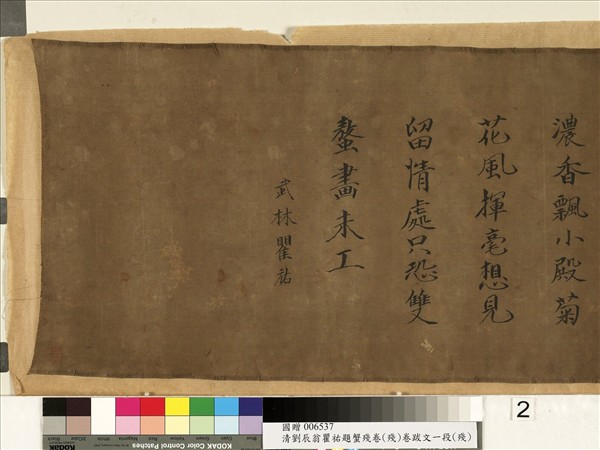 濃香飄小殿菊
花風揮毫想見
留情處只恐雙
螯畫未工
武林瞿祐
2
國贈 006537
清劉辰翁瞿祐題蟹殘卷(殘)卷跋文一段(殘)
KODAK Color Control Patches